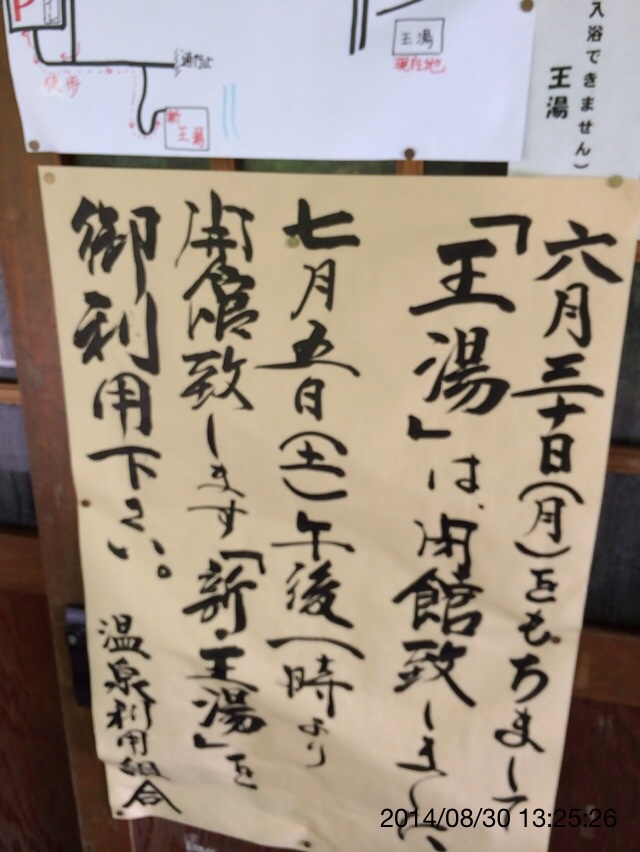 P
通行止
徒歩
新
王湯
王湯
現在地
入浴できません)
王湯
六月三十日(月)をもちまして
「王湯」は、閉館致しました
七月五日(土)午後一時より
開館致します「新・王湯」を
御利用下さい。
温泉利用組合
2014/08/30 13:25:26